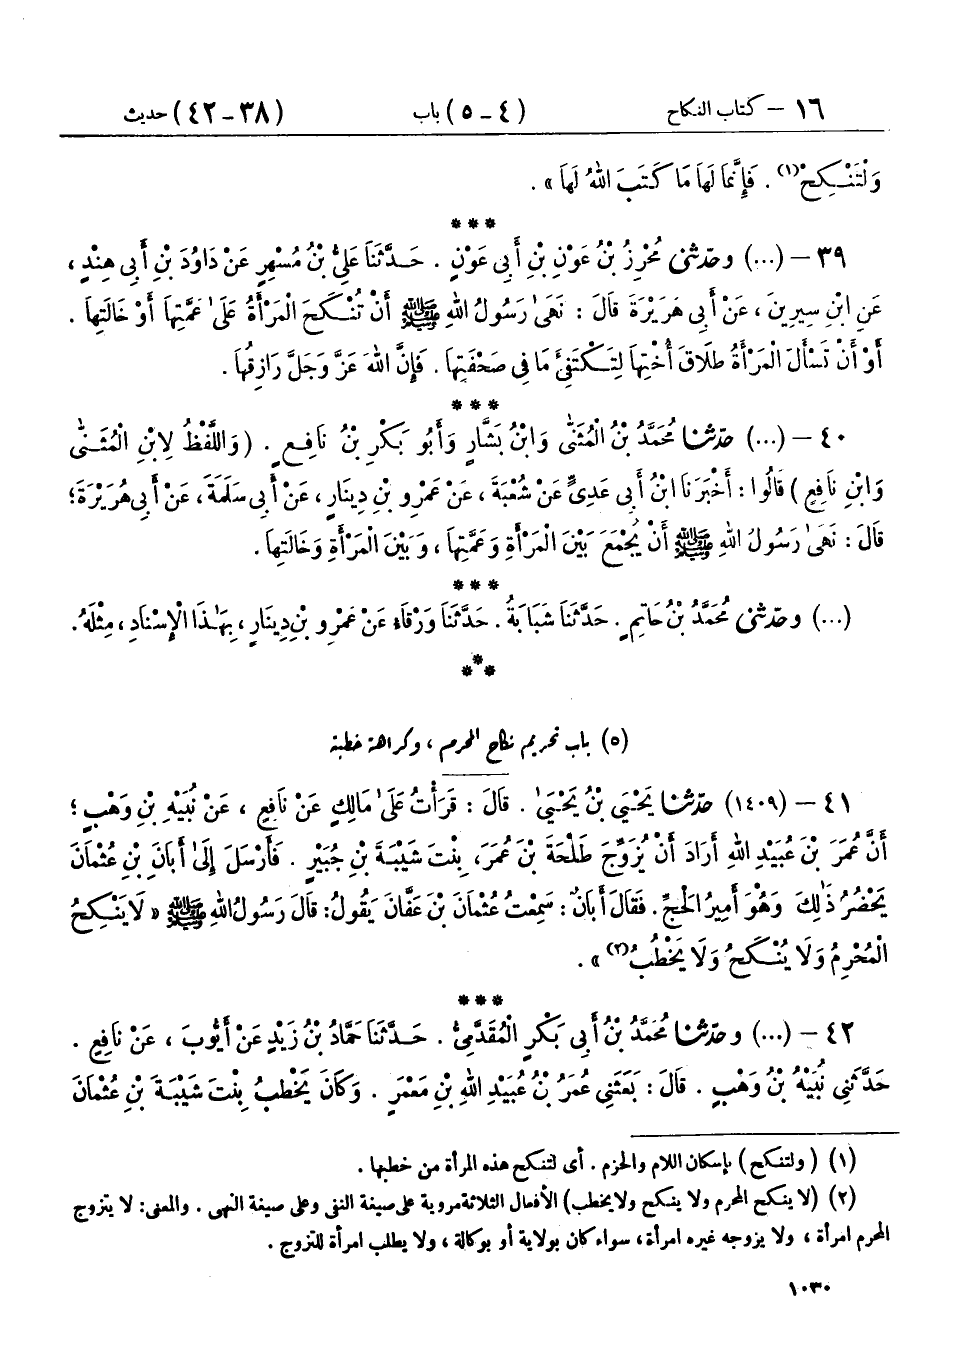 ١٦ – كتاب النكاح (٤ – ٥) باب (٣٨ – ٤٢) حديث
وَلْتَنْكِحْ(١) . فَإِنَّمَا لَهَا مَا كَتَبَ اللهُ لَهَا » .
***
٣٩ – (...) وحَدَّثَنِي مُحْرِزُ بْنُ عَوْنِ بْنِ أَبِي عَوْنٍ . حَدَّثَنَا عَلِيُّ بْنُ مُسْهِرٍ عَنْ دَاوُدَ بْنِ أَبِي هِنْدٍ ،
عَنِ ابْنِ سِيرِينَ ، عَنْ أَبِي هُرَيْرَةَ قَالَ : نَهَىٰ رَسُولُ اللهِ ﷺ أَنْ تُنْكَحَ الْمَرْأَةُ عَلَىٰ عَمَّتِهَا أَوْ خَالَتِهَا .
أَوْ أَنْ تَسْأَلَ الْمَرْأَةُ طَلَاقَ أُخْتِهَا لِتَكْتَفِئَ مَا فِي صَحْفَتِهَا . فَإِنَّ اللهَ عَزَّ وَجَلَّ رَازِقُهَا .
***
٤٠ – (...) حَدَّثَنَا مُحَمَّدُ بْنُ الْمُثَنَّىٰ وَابْنُ بَشَّارٍ وَأَبُو بَكْرِ بْنُ نَافِعٍ . ( وَاللَّفْظُ لِابْنِ الْمُثَنَّىٰ
وَابْنِ نَافِعٍ ) قَالُوا : أَخْبَرَنَا ابْنُ أَبِي عَدِيٍّ عَنْ شُعْبَةَ ، عَنْ عَمْرِو بْنِ دِينَارٍ ، عَنْ أَبِي سَلَمَةَ ، عَنْ أَبِي هُرَيْرَةَ ؛
قَالَ : نَهَىٰ رَسُولُ اللهِ ﷺ أَنْ يُجْمَعَ بَيْنَ الْمَرْأَةِ وَعَمَّتِهَا ، وَبَيْنَ الْمَرْأَةِ وَخَالَتِهَا .
***
(...) وحَدَّثَنِي مُحَمَّدُ بْنُ حَاتِمٍ . حَدَّثَنَا شَبَابَةُ . حَدَّثَنَا وَرْقَاءُ عَنْ عَمْرِو بْنِ دِينَارٍ ، بِهَٰذَا الْإِسْنَادِ ، مِثْلَهُ .
***
(٥) باب تحريم نكاح المحرم ، وكراهة خطبته
٤١ – (١٤٠٩) حَدَّثَنَا يَحْيَى بْنُ يَحْيَىٰ . قَالَ : قَرَأْتُ عَلَىٰ مَالِكٍ عَنْ نَافِعٍ ، عَنْ نُبَيْهِ بْنِ وَهْبٍ ؛
أَنَّ عُمَرَ بْنَ عُبَيْدِ اللهِ أَرَادَ أَنْ يُزَوِّجَ طَلْحَةَ بْنَ عُمَرَ ، بِنْتَ شَيْبَةَ بْنِ جُبَيْرٍ . فَأَرْسَلَ إِلَىٰ أَبَانَ بْنِ عُثْمَانَ
يَحْضُرُ ذَٰلِكَ وَهُوَ أَمِيرُ الْحَجِّ . فَقَالَ أَبَانٌ : سَمِعْتُ عُثْمَانَ بْنَ عَفَّانَ يَقُولُ : قَالَ رَسُولُ اللهِ ﷺ « لَا يَنْكِحُ
الْمُحْرِمُ وَلَا يُنْكَحُ وَلَا يَخْطُبُ(٢) » .
***
٤٢ – (...) وحَدَّثَنَا مُحَمَّدُ بْنُ أَبِي بَكْرٍ الْمُقَدَّمِيُّ . حَدَّثَنَا حَمَّادُ بْنُ زَيْدٍ عَنْ أَيُّوبَ ، عَنْ نَافِعٍ .
حَدَّثَنِي نُبَيْهُ بْنُ وَهْبٍ . قَالَ : بَعَثَنِي عُمَرُ بْنُ عُبَيْدِ اللهِ بْنِ مَعْمَرٍ . وَكَانَ يَخْطُبُ بِنْتَ شَيْبَةَ بْنِ عُثْمَانَ
(١) ( ولتنكح ) بإسكان اللام والجزم . أى لتنكح هذه المرأة من خطبها .
(٢) (لا ينكح المحرم ولا ينكح ولا يخطب) الأفعال الثلاثة مروية على صيغة النفى وعلى صيغة النهى . والمعنى: لا يتزوج
المحرم امرأة ، ولا يزوجه غيره امرأة ، سواء كان بولاية أو بوكالة ، ولا يطلب امرأة للتزوج .
١٠٣٠